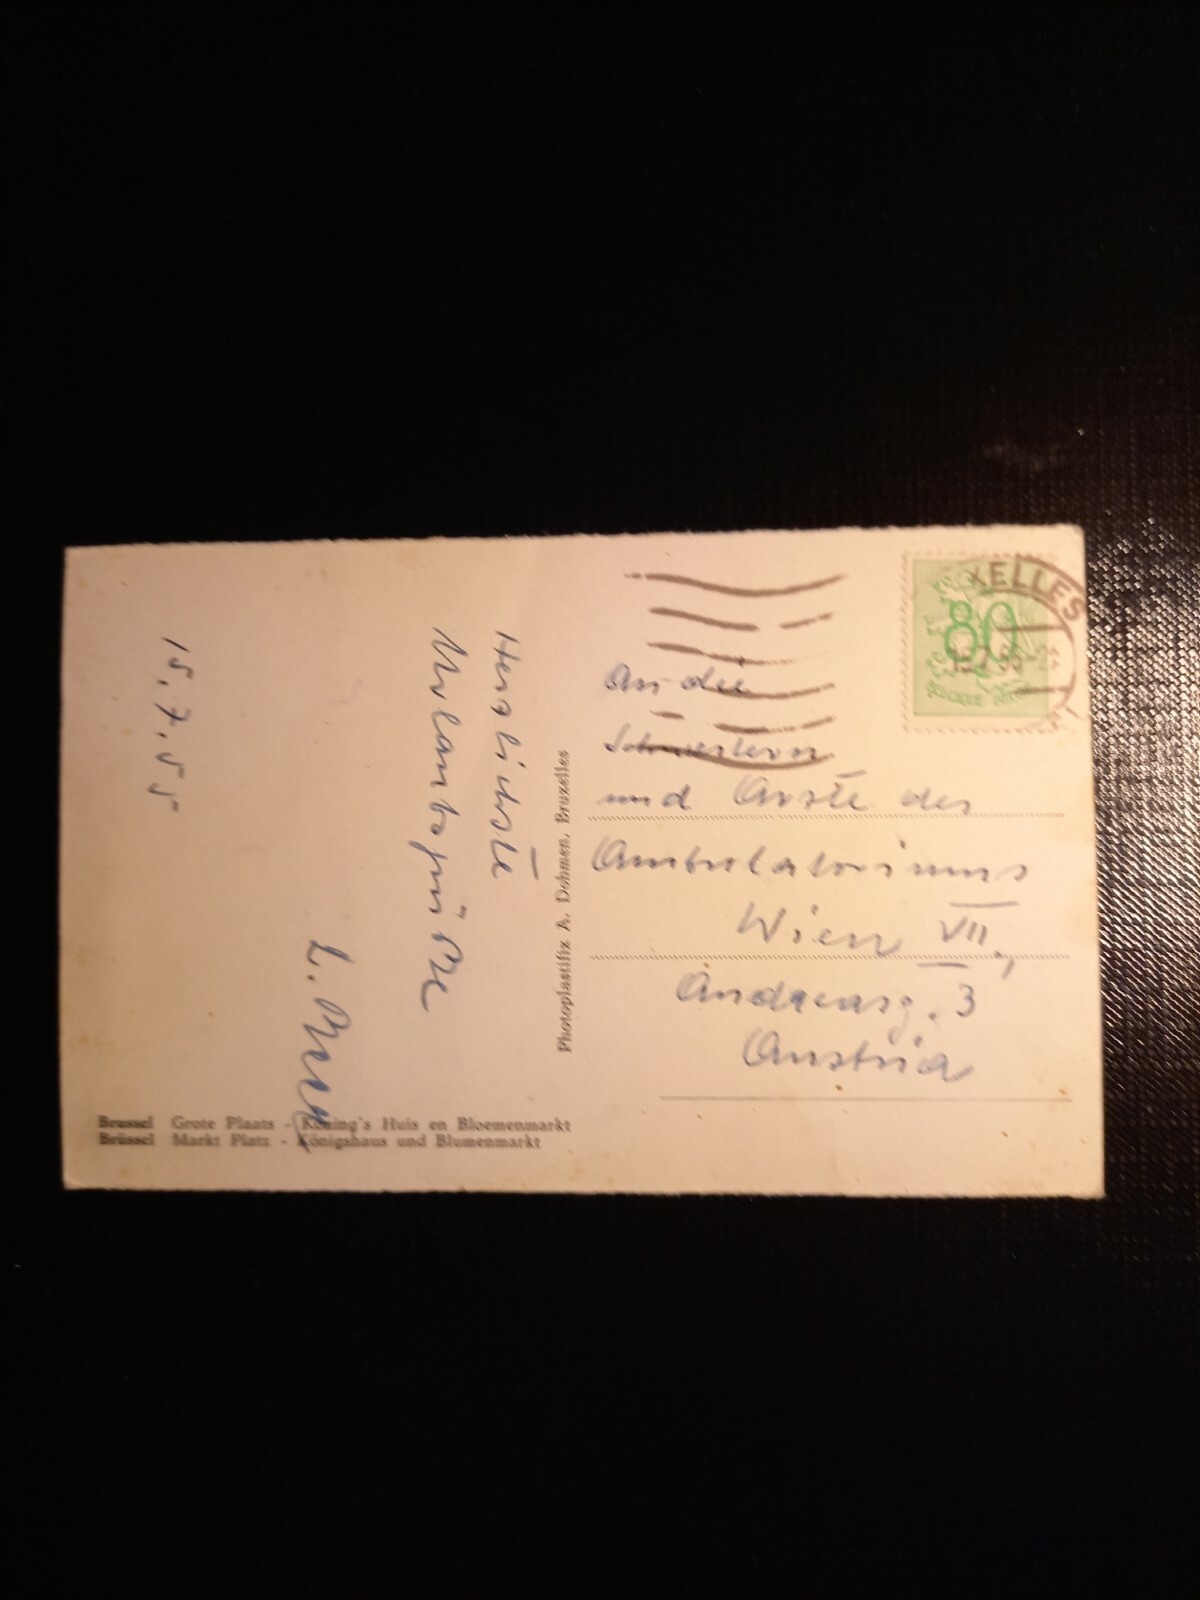 15.7.55
Herzlichste
Urlaubsgrüße
L.
Brussel Grote Plaats - Koning's Huis en Bloemenmarkt
Brüssel Markt Platz - Königshaus und Blumenmarkt
Photoplastifix A. Dohmen, Bruxelles
XELLES
80
BELGIQUE
An die
Schwestern
und Ärzte des
Ambulatoriums
Wien VII,
Andreasg. 3
Austria